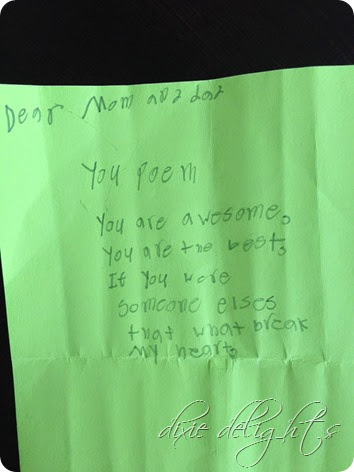 Dear Mom and dad
You poem
You are awesome.
You are the best.
If you were
someone elses
that what break
My heart.
dixie delights